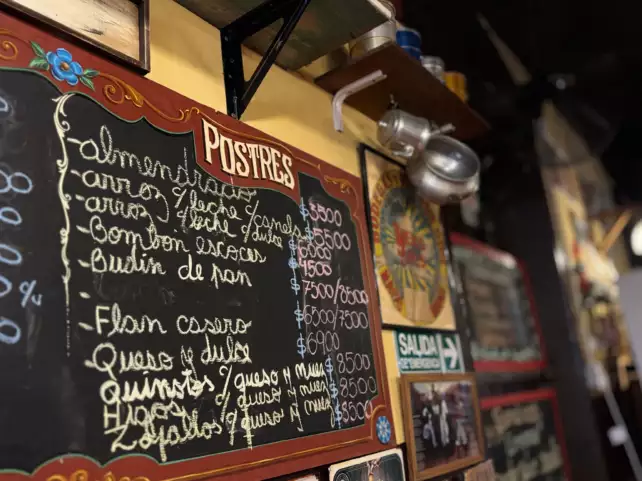 POSTRES
-almendrado $3500
-arroz c/leche c/canela $5500
-arroz c/leche c/dulce 6000
-Bombon escoces 4500
-Budin de pan $7500/8500
$6500/7500
-Flan casero $6900
-Queso y dulce
Quinotos c/queso y nuez $8500
Higos c/queso y nuez $8500
Zapallos c/queso y nuez $8500
SALIDA
DE EMERGENCIA